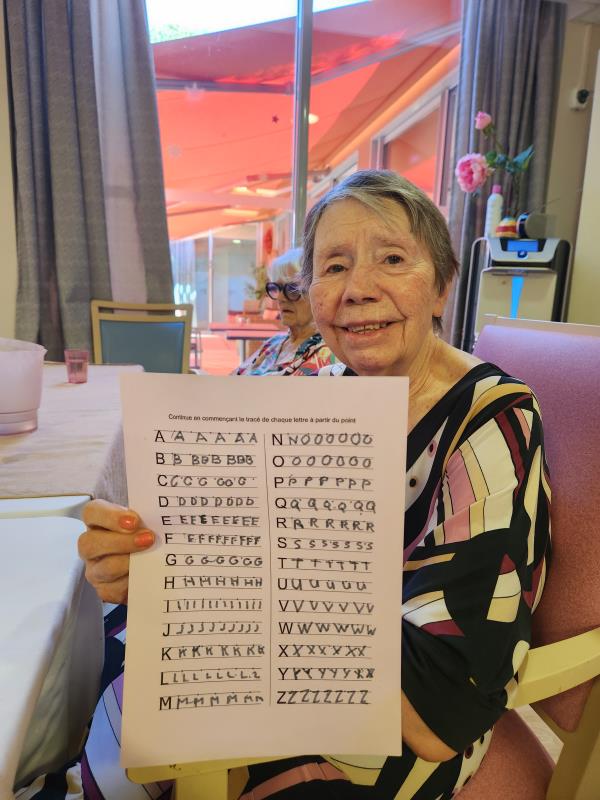 Continue en commençant le tracé de chaque lettre à partir du point
A A A A A A
B B B B B B B
C C C C O O C
D D D D D D D
E E F E E E E E E
F E F F F F F F F
G G G G G G G
H H H H H H H H
I I I I I I I I I
J J J J J J J J J
K K K K K K K
L L L L L L L L
M M M M M M M
N N O O O O O O
O O O O O O O
P P P P P P P
Q Q Q Q Q Q Q
R R R R R R R
S S S S S S S S
T T T T T T T
U U U U U U U
V V V V V V V
W W W W W W
X X X X X X X
Y Y Y Y Y Y X
Z Z Z Z Z Z Z